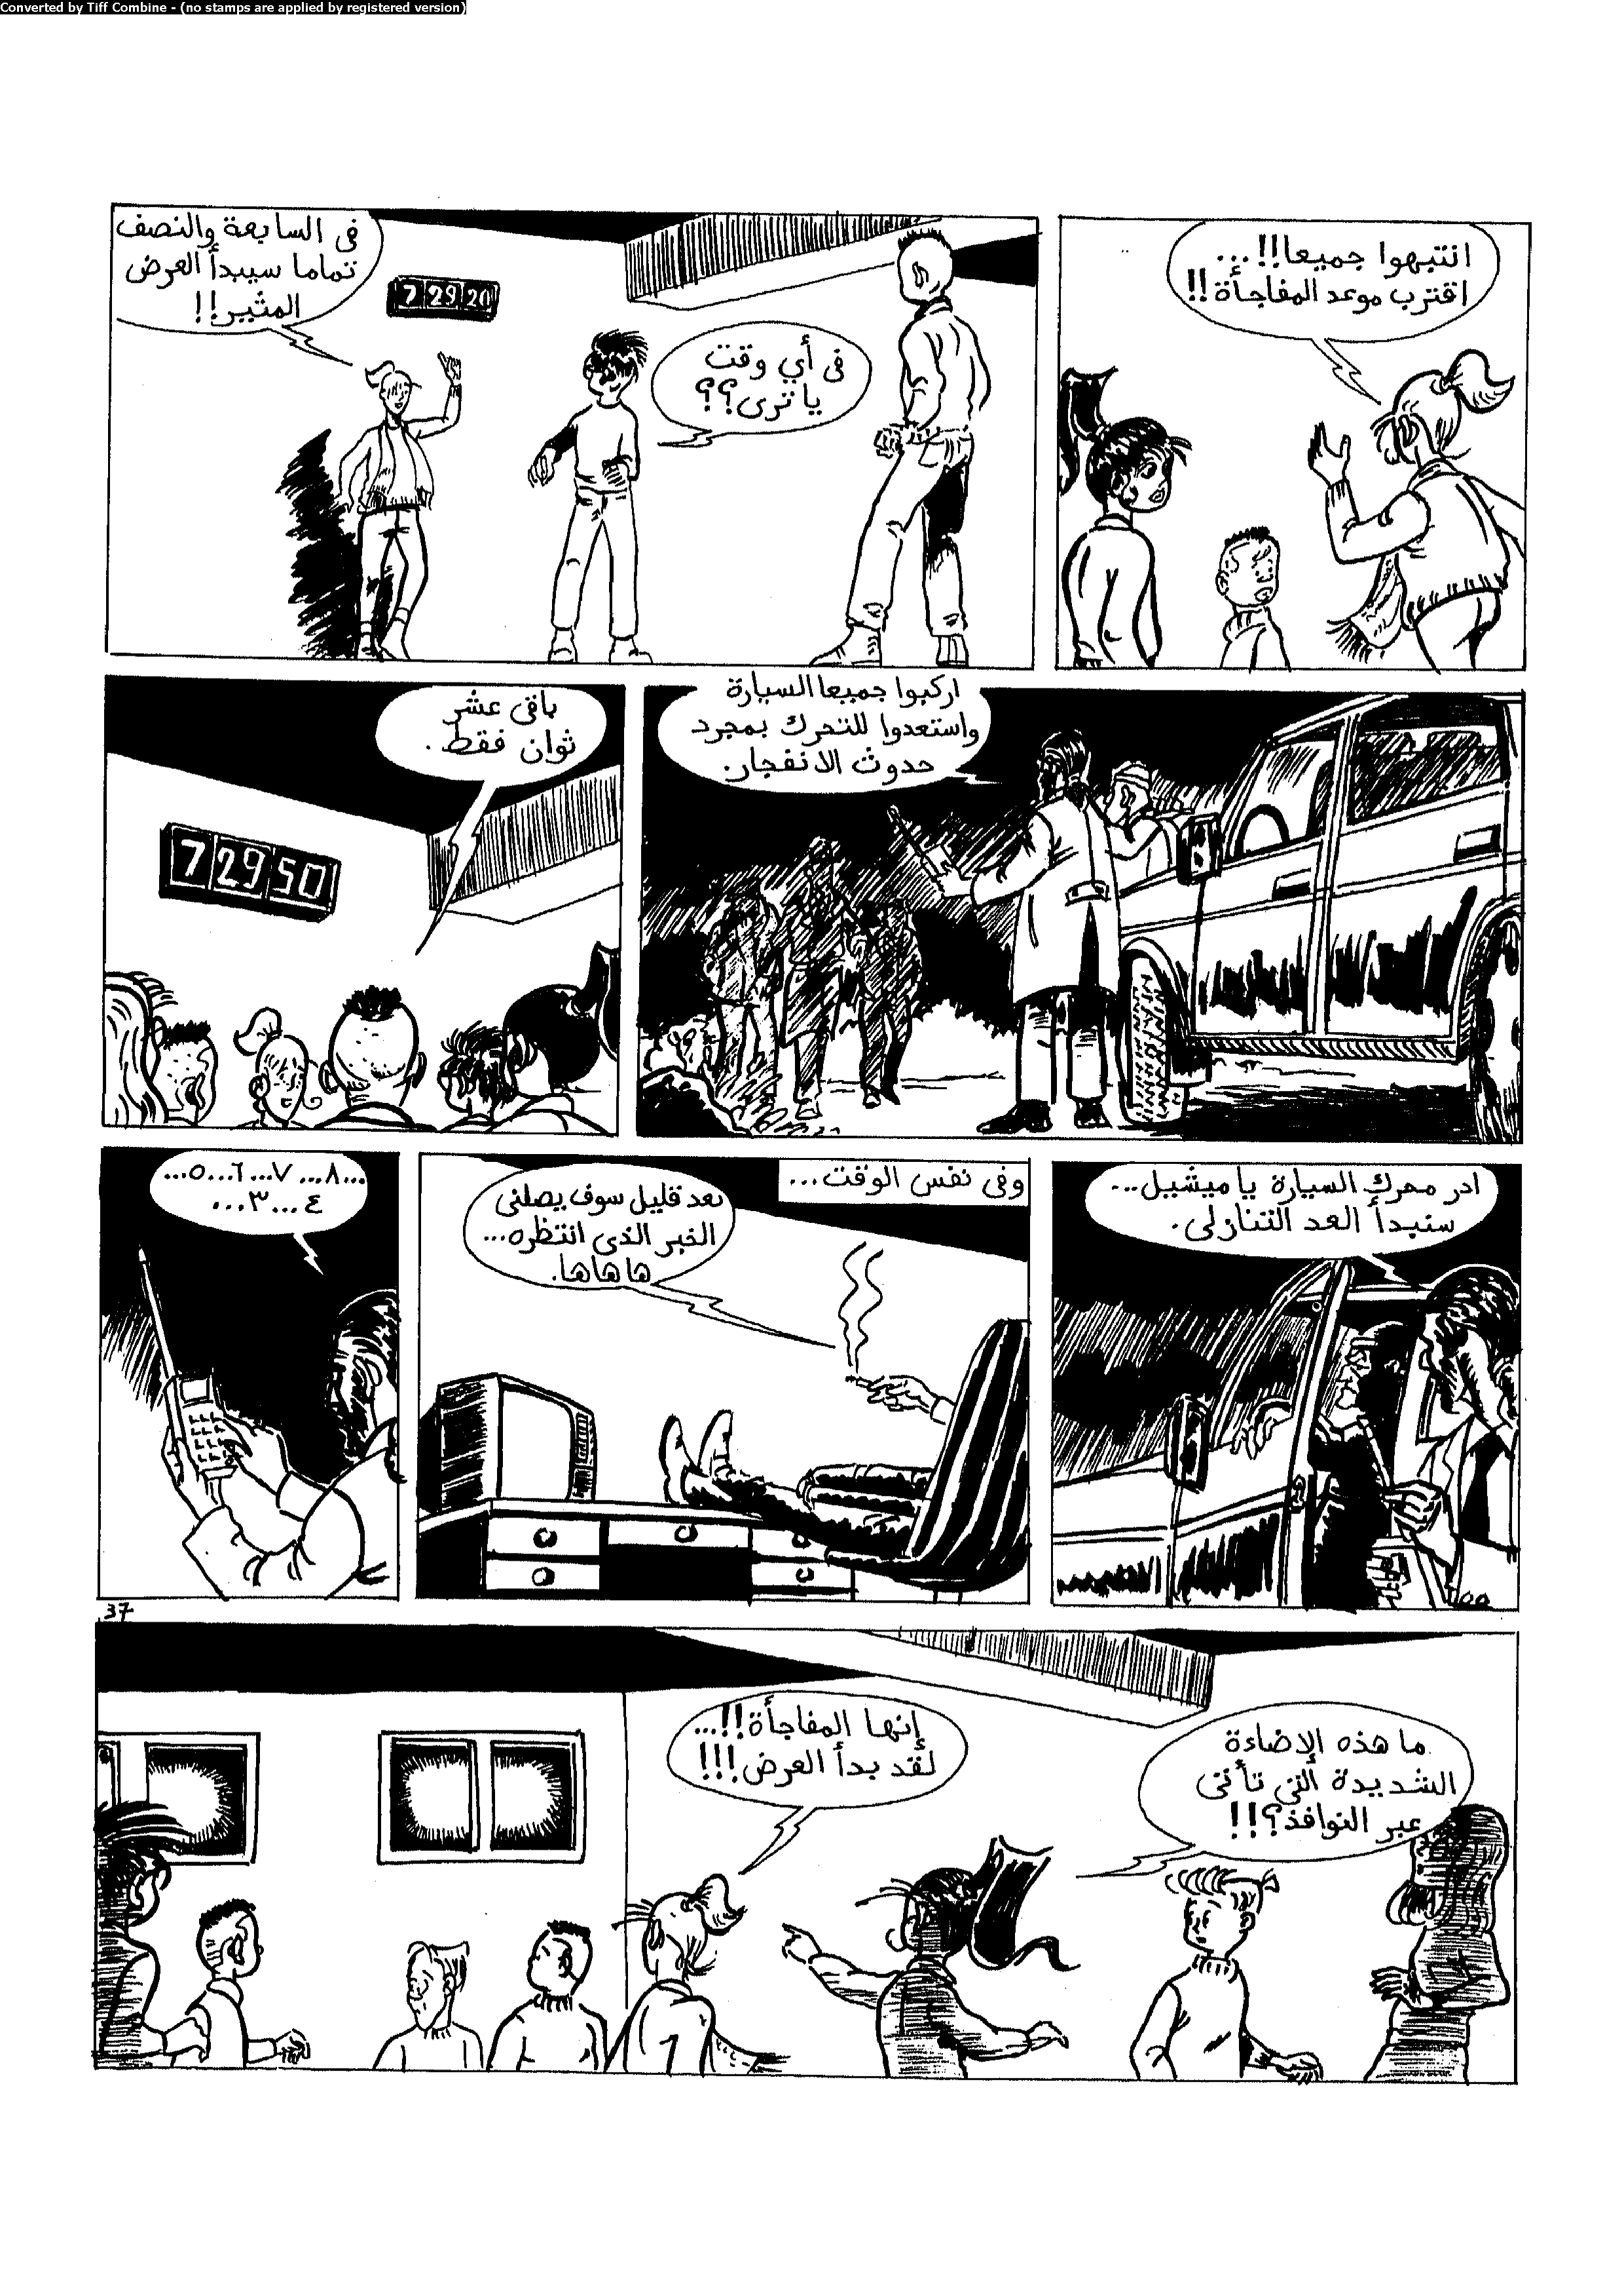 Converted by Tiff Combine - (no stamps are applied by registered version)
انتبهوا جميعا!!...
اقترب موعد المفاجأة!!
فى أي وقت
يا ترى؟؟
فى السابعة والنصف
تماما سيبدأ العرض
المثير!!
7 29 20
اركبوا جميعا السيارة
واستعدوا للتحرك بمجرد
حدوث الانفجار.
باقى عشر
ثوان فقط.
7 29 50
ادر محرك السيارة يا ميشيل...
سنبدأ العد التنازلى.
وفى نفس الوقت...
بعد قليل سوف يصلنى
الخبر الذى انتظره...
هاهاها.
...٨...٧...٦...٥...
٤...٣...
37
ما هذه الإضاءة
الشديدة التى تأتى
عبر النوافذ؟!!
إنها المفاجأة!!...
لقد بدأ العرض!!!